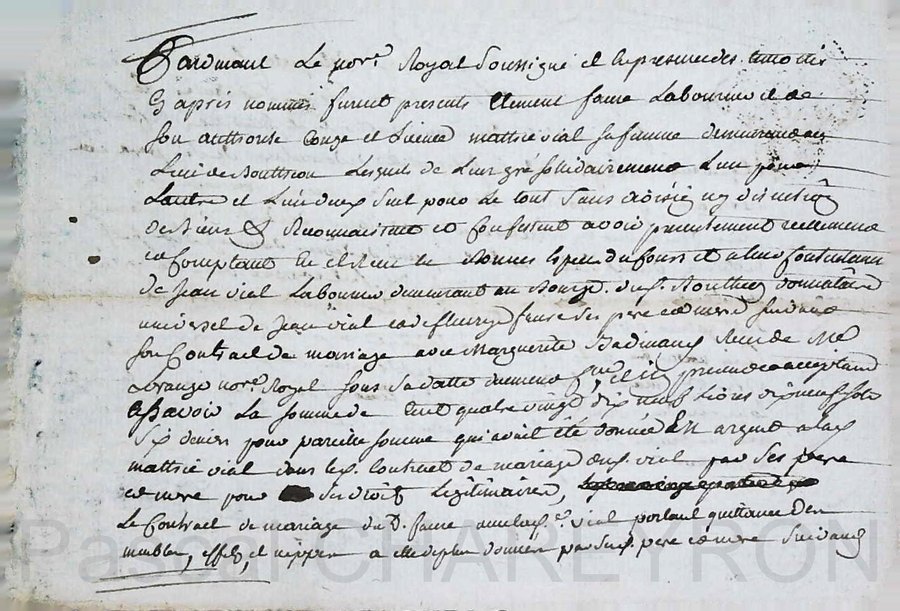 Pardevant Le nore. Royal Soussigné et en presence des temoins
Cy apres nommés furent presents Clement faure Laboureur et de
son authorité Conge et Licence matthie vial sa femme demeurants au
Lieu de Bouthion Lesquels de Leur gré solidairement L'un pour
L'autre et L'un deux seul pour Le tout sans division ny discution
de biens & Reconnaissent et Confessent avoir presentement reellement
et Comptant en et de bonnes Especes du Cours et a leur Contentement
de Jean vial Laboureur demeurant au Bourg dud. Bouthion donnataire
universel de Jean vial et de fleurye faure ses pere et mere suivant
son Contract de mariage avec Marguerite Recu de Me
nore. Royal sous sa datte present et acceptant
assavoir La somme de Cent quatre vingt dix neuf Livres dix neuf sols
six deniers pour pareille somme qui avoit été donnée En argent a lad.
matthie vial dans led. Contract de mariage dud. vial par ses pere
et mere pour ses droits Legitimaires,
Le Contract de mariage du D. faure avec lad. vial portant quittance des
meubles, effets, et nippes a elle donnés par sesd. pere et mere suivant
Pascal CHAREYRON